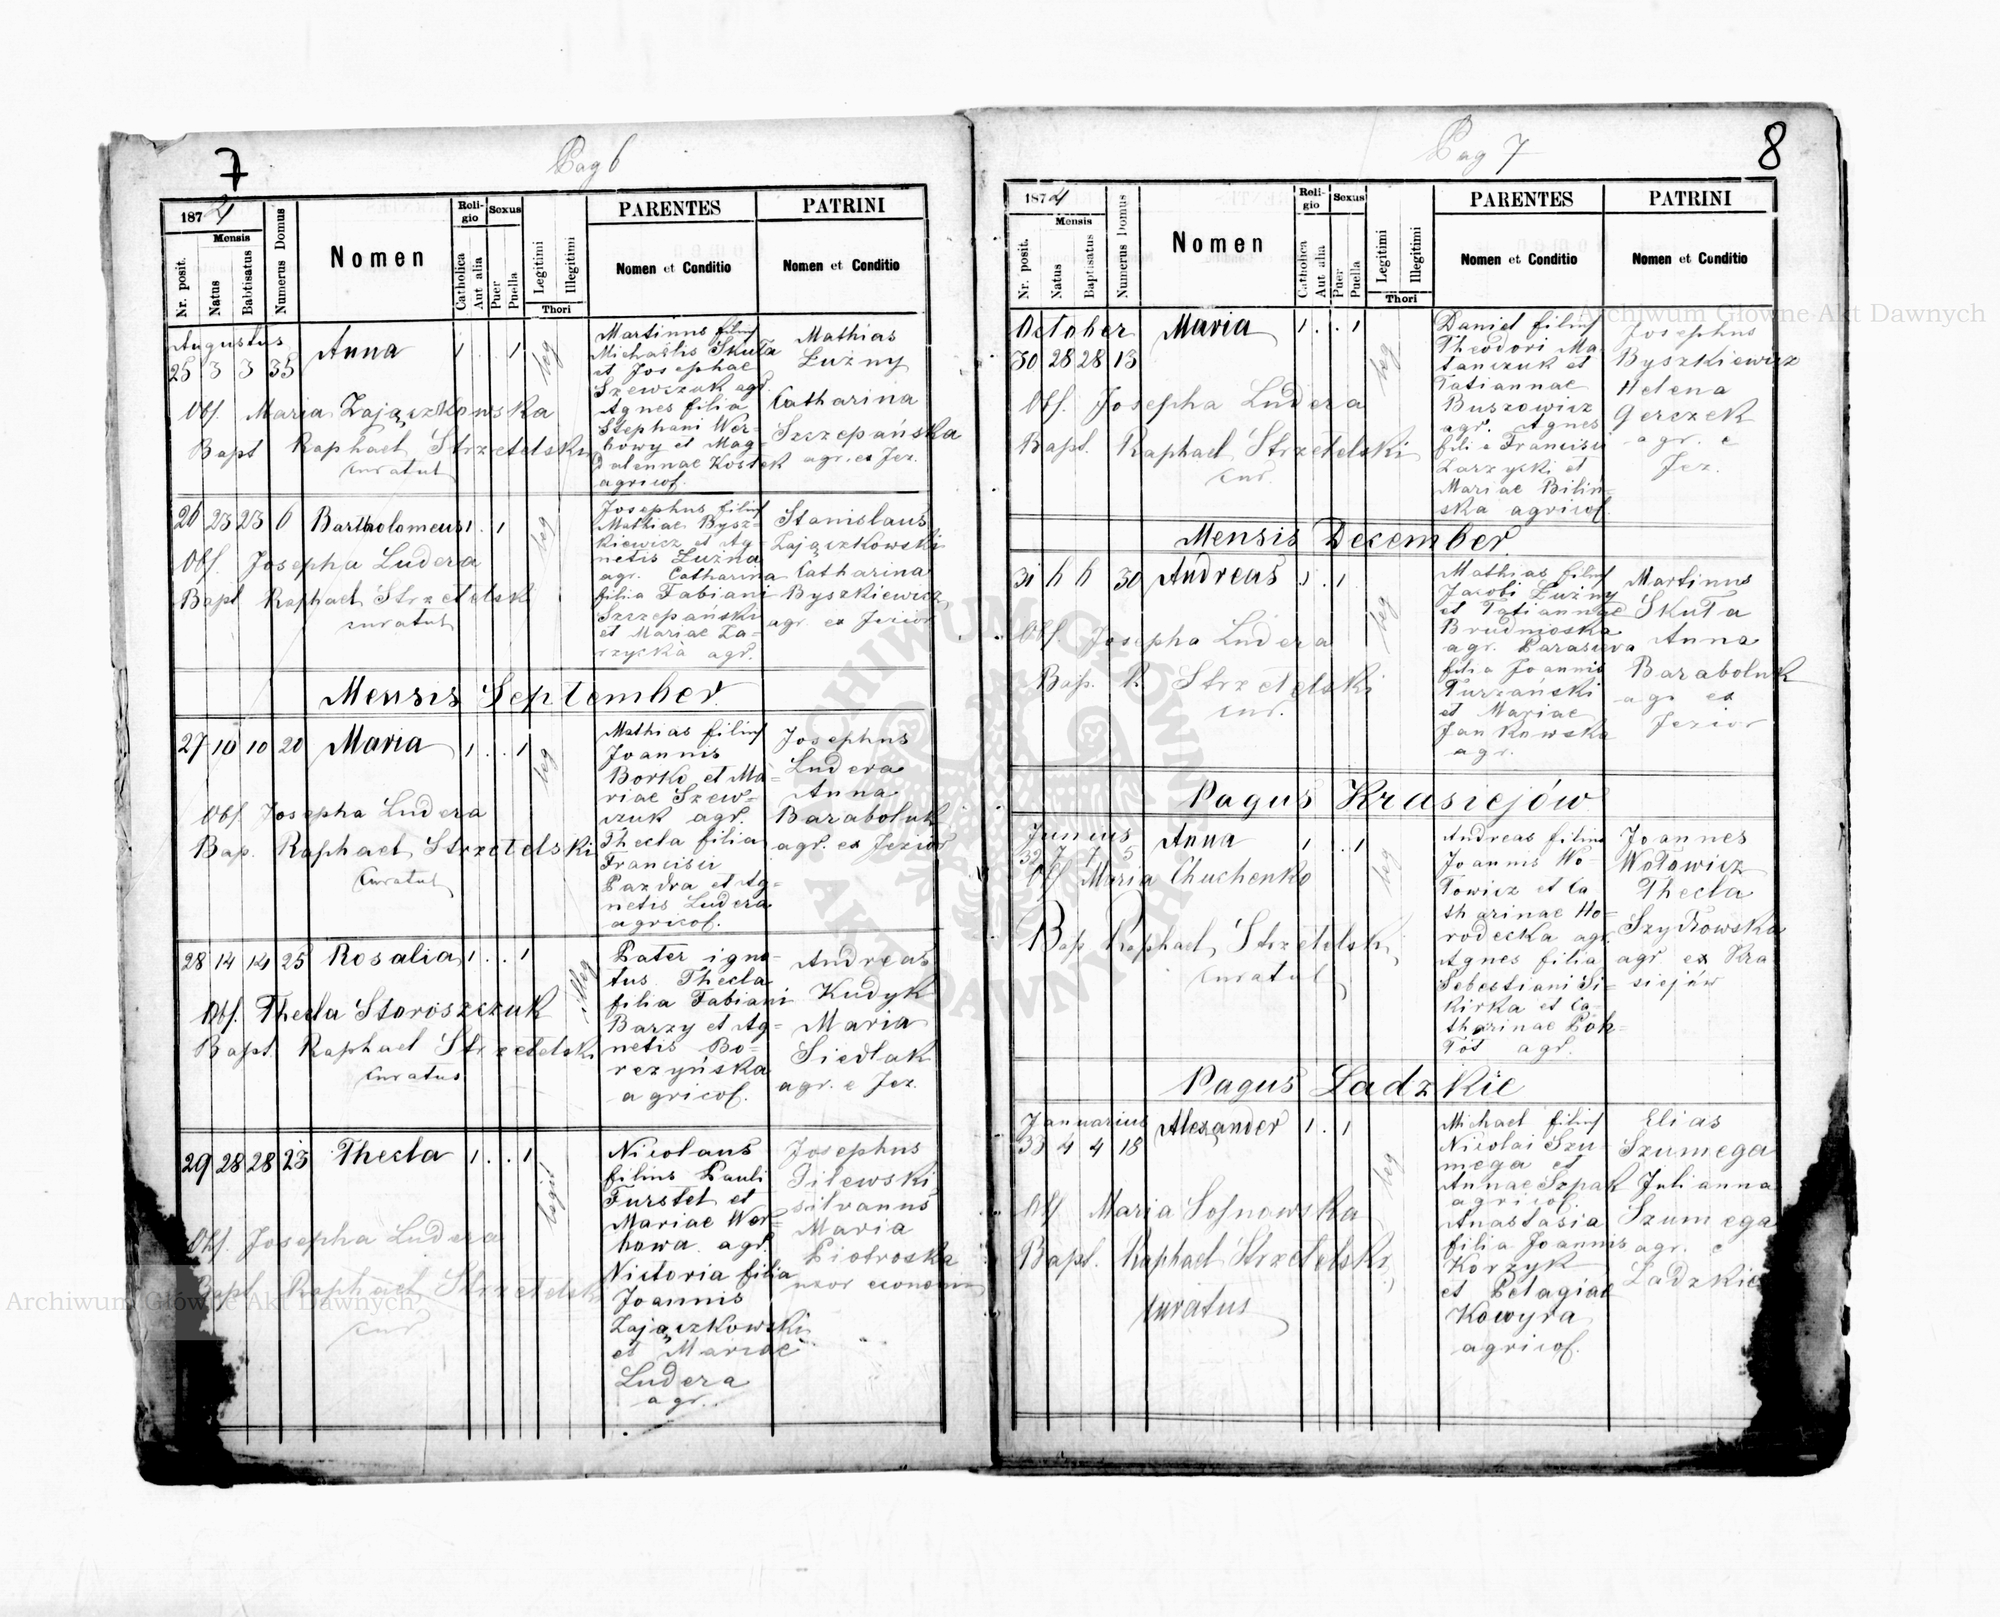 7
Pag 6
1874
Mensis
Nr. posit.
Natus
Babtisatus
Numerus Domus
Nomen
Religio
Catholica
Aut alia
Sexus
Puer
Puella
Legitimi
Illegitimi
Thori
PARENTES
Nomen et Conditio
PATRINI
Nomen et Conditio
Augustus
25 3 3 35 Anna 1 . . 1 leg
Obs. Maria Zajączkowska
Bapt Raphael Strzetelski
curatus
Martinus filius
Michaelis Skuła
et Josephae
Szewczuk agr.
Agnes filia
Stephani Wer-
bowy et Mag-
dalennae Kostek
agricol.
Mathias
Luzny
Catharina
Szczepańska
agr. ex Jez.
26 23 23 6 Bartholomeus 1 . 1 leg
Obs. Josepha Ludera
Bapt Raphael Strzetelski
curatus
Josephus filius
Mathiae Bysz-
kiewicz et Ag-
netis Luzna
agr. Catharina
filia Fabiani
Szczepański
et Mariae Za-
rzycka agr.
Stanislaus
Zajączkowski
Catharina
Byszkiewicz
agr. ex Jezior
Mensis September.
27 10 10 20 Maria 1 . . 1 leg
Obs. Josepha Ludera
Bap. Raphael Strzetelski
Curatus
Mathias filius
Joannis
Borko et Ma-
riae Szew-
czuk agr.
Thecla filia
Francisci
Pazdra et Ag-
netis Ludera
agricol.
Josephus
Ludera
Anna
Baraboluk
agr. ex Jezior
28 14 14 25 Rosalia 1 . . 1 illeg
Obs. Thecla Storoszczuk
Bapt. Raphael Strzetelski
Curatus
Pater igno-
tus Thecla
filia Fabiani
Barzy et Ag-
netis Bo-
rezyńska
agricol.
Andreas
Kudyk
Maria
Siedlak
agr. e Jez.
29 28 28 23 Thecla 1 . . 1 legit
Obs. Josepha Ludera
Bapt Raphael Strzetelski
cur.
Nicolaus
filius Pauli
Furstel et
Mariae Wer-
bowa agr.
Victoria filia
Joannis
Zajączkowski
et Mariae
Ludera
agr.
Josephus
Pilewski
silvanus
Maria
Piotroska
uxor econom
8
Pag 7
1874
Mensis
Nr. posit.
Natus
Baptisatus
Numerus Domus
Nomen
Religio
Catholica
Aut alia
Sexus
Puer
Puella
Legitimi
Illegitimi
Thori
PARENTES
Nomen et Conditio
PATRINI
Nomen et Conditio
October Maria 1 . . 1 leg
30 28 28 13
Obs. Josepha Ludera
Bapt. Raphael Strzetelski
cur.
Daniel filius
Theodori Ma-
tanczuk et
Tatiannae
Buszowicz
agr. Agnes
filia Francisci
Zarzycki et
Mariae Bilin-
ska agricol.
Josephus
Byszkiewicz
Helena
Gerczek
agr. e
Jez.
Mensis December.
31 6 6 30 Andreas 1 . 1 leg
Obs. Josepha Ludera
Bap. R. Strzetelski
cur.
Mathias filius
Jacobi Luzny
et Tatiannae
Brudnioska
agr. Parasceva
filia Joannis
Turzański
et Mariae
Jankowska
agr.
Martinus
Skuła
Anna
Baraboluk
agr ex
Jezior
Pagus Krasiejów
Junius Anna 1 . . 1 leg
32 7 7 5
Obs Maria Chuchenko
Bap Raphael Strzetelski
curatus
Andreas filius
Joannis Wo-
łowicz et Ca
tharinae Ho-
rodecka agr.
Agnes filia
Sebestiani Si-
kirka et Ca-
tharinae Poh-
agr.
Joannes
Wołowicz
Thecla
Szydłowska
agr ex Kra
siejów
Pagus Ladzkie
Januarius Alexander 1 . 1 leg
33 4 4 18
Obs Maria Sosnowska
Bapt. Raphael Strzetelski
curatus
Michael filius
Nicolai Szu-
mega et
Annae Szpak
agricol.
Anastasia
filia Joannis
Korzyk
et Pelagiae
Kowyra
agricol.
Elias
Szumega
Julianna
Szumega
agr. e
Ladzkie
Archiwum Główne Akt Dawnych
Archiwum Główne Akt Dawnych
ARCHIWUM GŁÓWNE AKT DAWNYCH